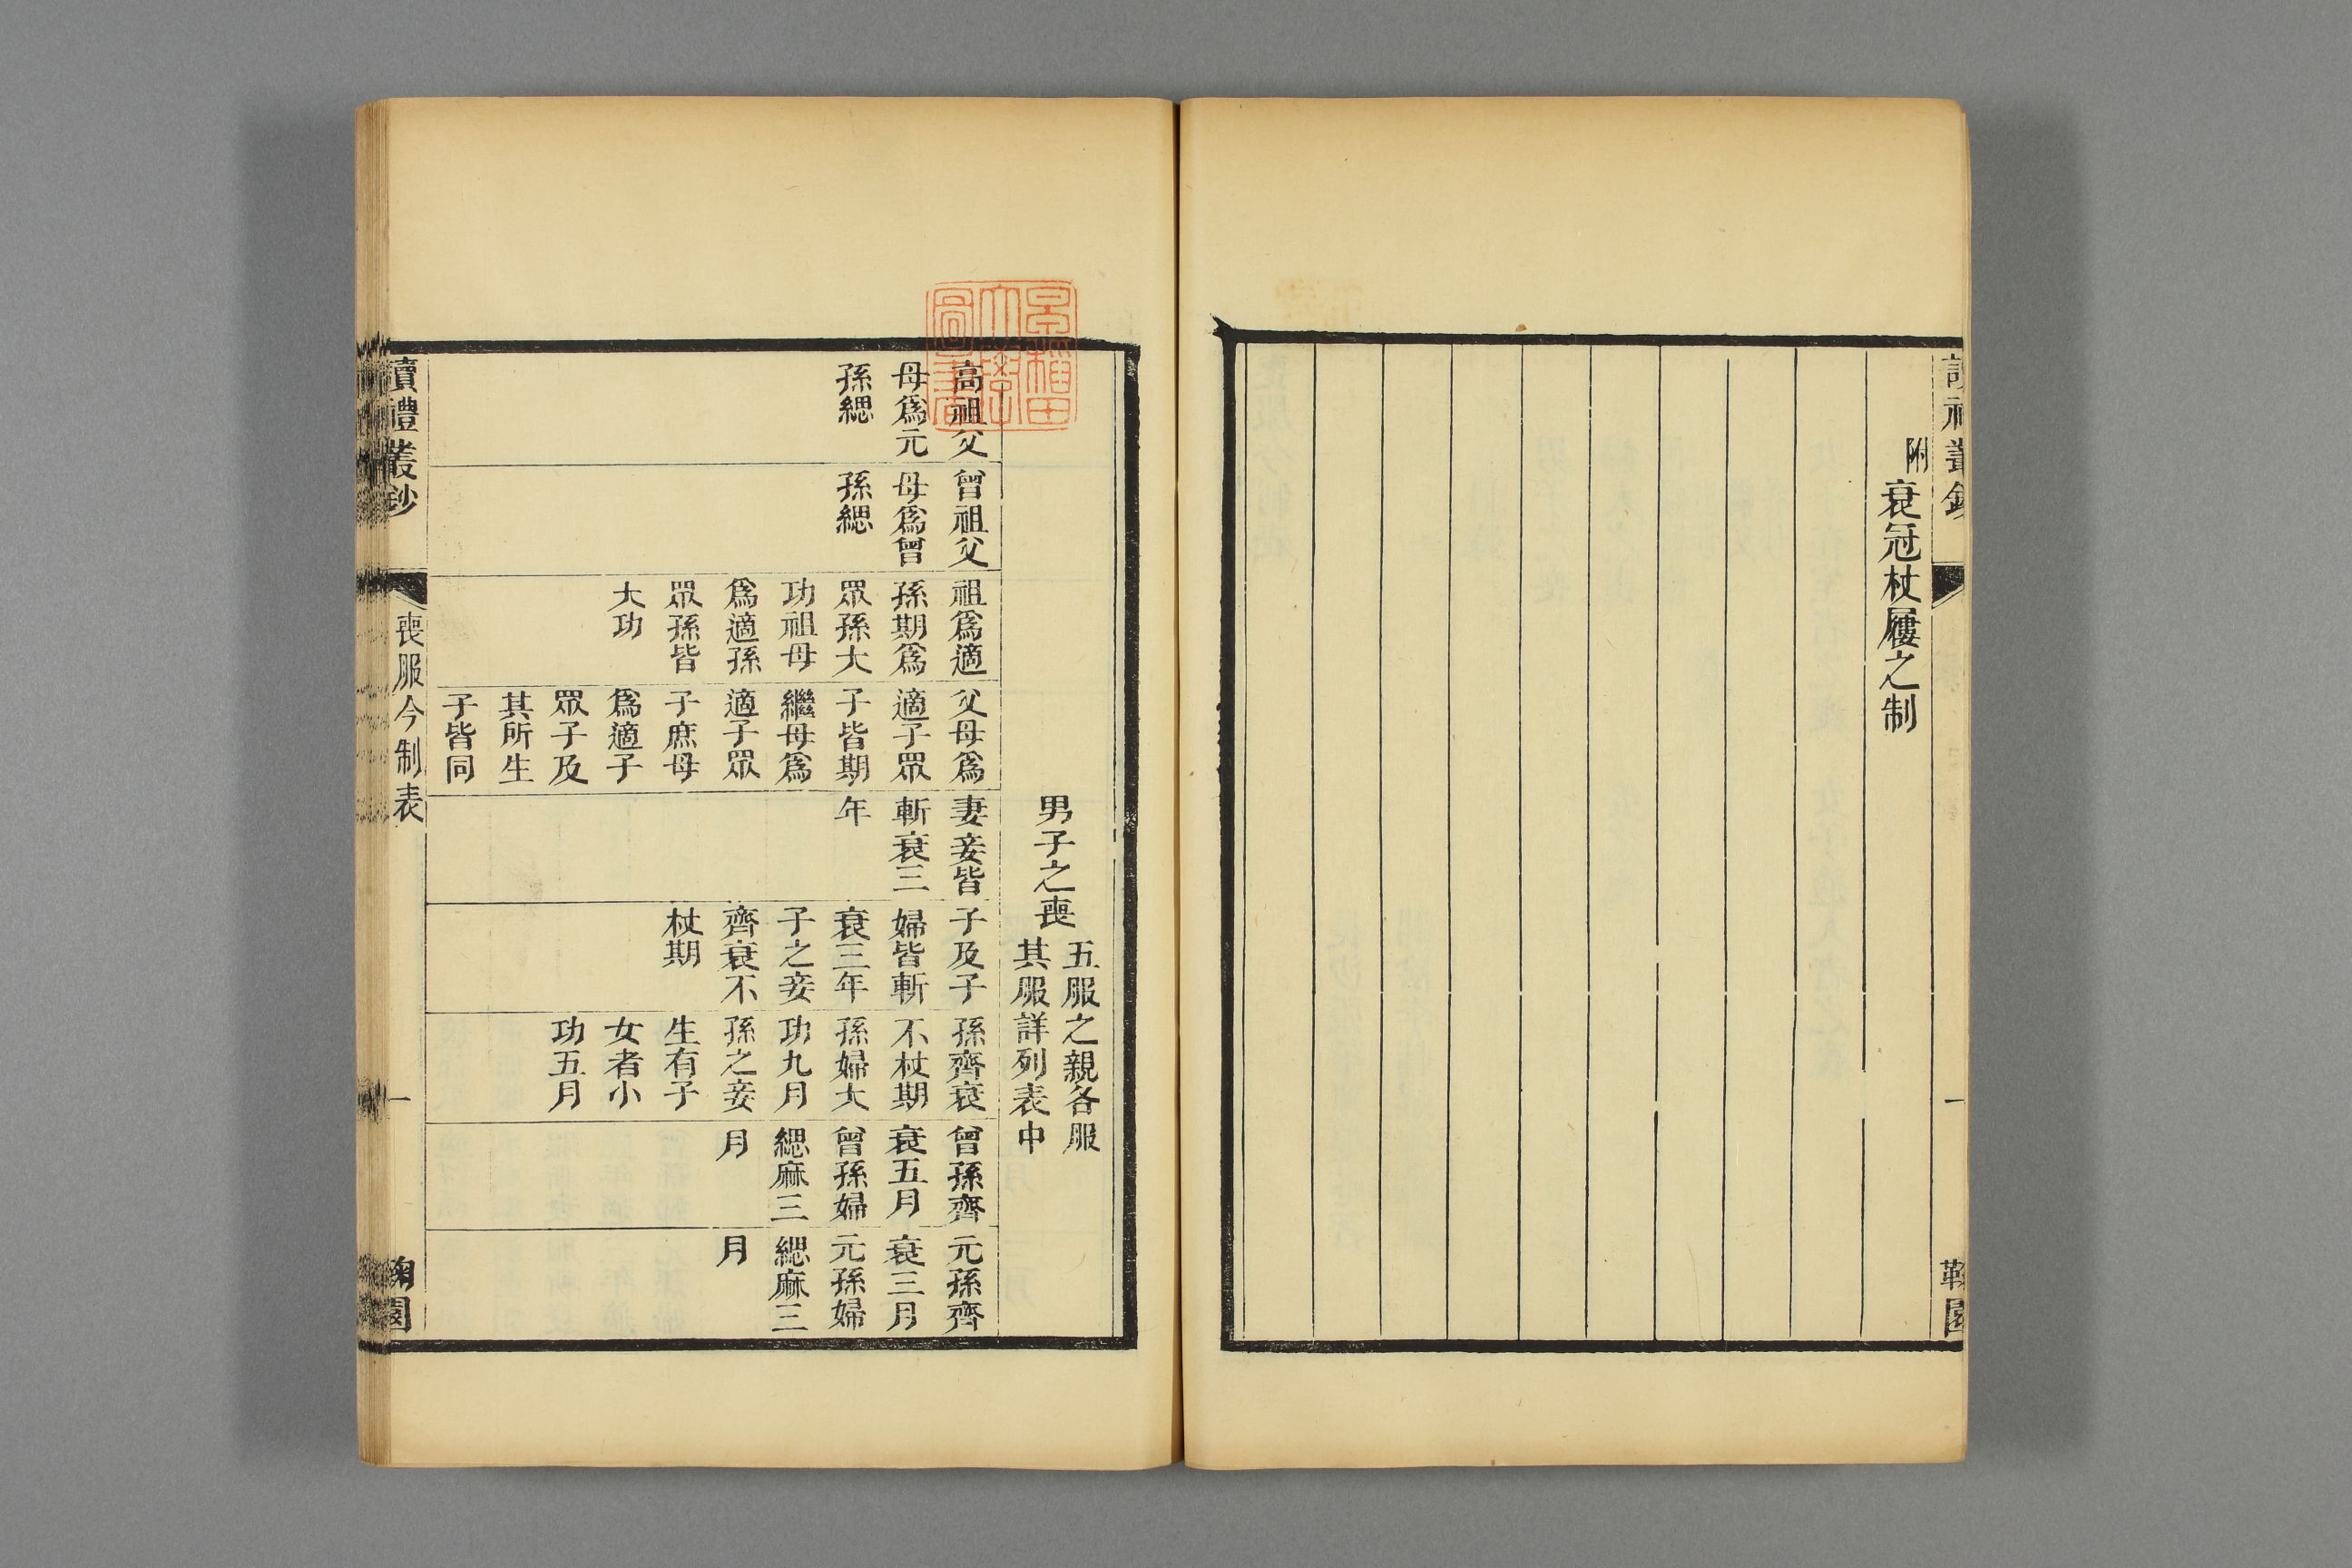 附
衰冠杖屨之制
一
男子之喪
五服之親各服
其服詳列表中
高祖父
母爲元
孫緦
曾祖父
母爲曾
孫緦
祖爲適
孫期爲
眾孫大
功祖母
爲適孫
眾孫皆
大功
父母爲
適子眾
子皆期
繼母爲
適子眾
子庶母
爲適子
眾子及
其所生
子皆同
妻妾皆
斬衰三
年
子及子
婦皆斬
衰三年
子之妾
齊衰不
杖期
孫齊衰
不杖期
孫婦大
功九月
孫之妾
生有子
女者小
功五月
曾孫齊
衰五月
曾孫婦
緦麻三
月
元孫齊
衰三月
元孫婦
緦麻三
月
讀禮叢鈔
喪服今制表
一
鞠園